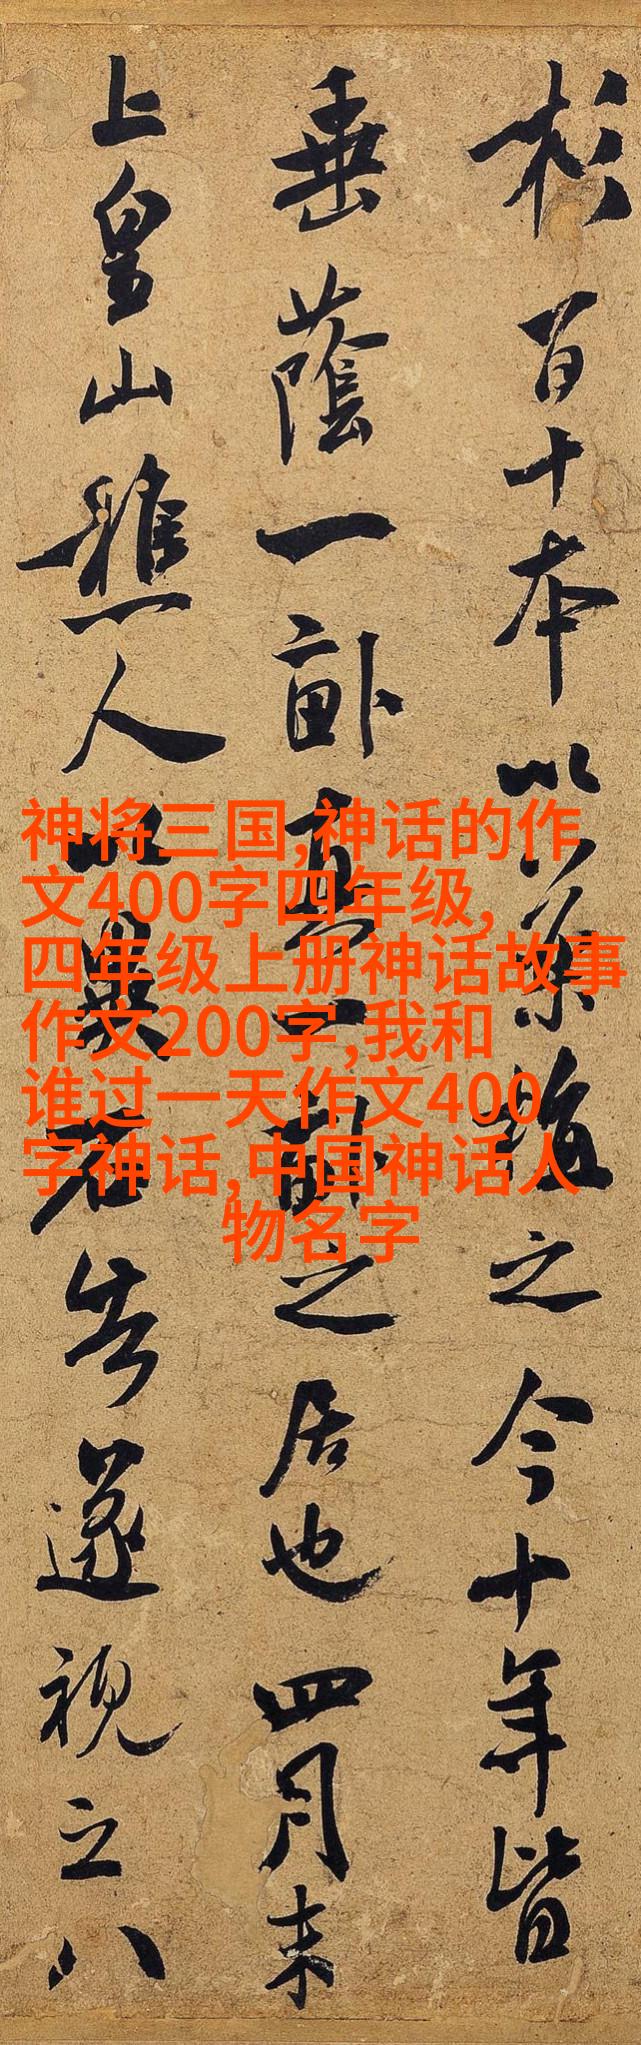 杉百十本以植之今十年皆
垂蔭一畝真一畝之居也四月末
上皇山樵人以異石告遂視之八
神将三国,神话的作
文400字四年级,
四年级上册神话故事
作文200字,我和
谁过一天作文400
字神话,中国神话人
物名字